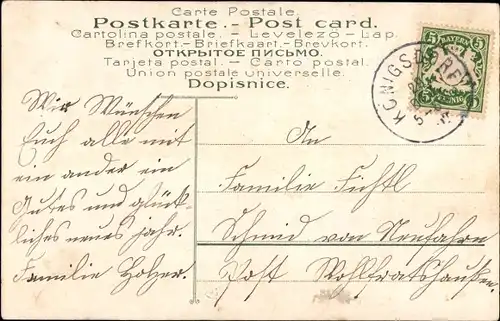 Carte Postale.
Postkarte. - Post card.
Cartolina postale. - Levelező-Lap.
Brefkort.-Briefkaart.-Brevkort.
ОТКРЫТОЕ ПИСЬМО.
Tarjeta postal. - Carto postal.
Union postale universelle.
Dopisnice.
5 BAYERN 5
5 PFENNIG 5
KÖNIGSDORF
Wir Wünschen
Euch alle mit
ein ander ein
Gutes und glück-
liches neues jahr.
Familie Holzer.
An
Familie Fichtl
Schmid von Neufahrn
Post Wolfratshausen.